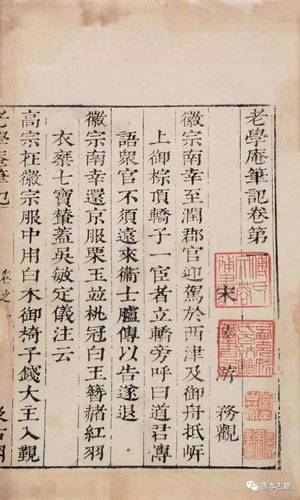 老學庵筆記卷第
宋 務觀
徽宗南幸至潤郡官迎駕於西津及御舟抵岸
上御棕頂轎子一宦者立轎旁呼曰道君傳
語衆官不須遠來衞士臚傳以告遂退
徽宗南幸還京服栗玉並桃冠白玉簪赭紅羽
衣乘七寶輦蓋吳敏定儀注云
高宗在徽宗服中用白木御椅子錢大主入覲
老學庵筆記
卷之一
善本古籍